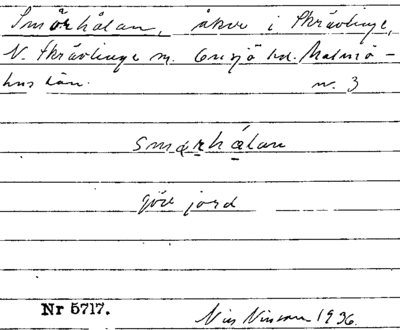 Smörhålan, åker i Skrävlinge,
N. Skrävlinge sn. Onsjö hd. Malmö-
hus län. nr. 3
smǫrhålan
göre jord
Nr 5717.
Nils Nilsson 1936.